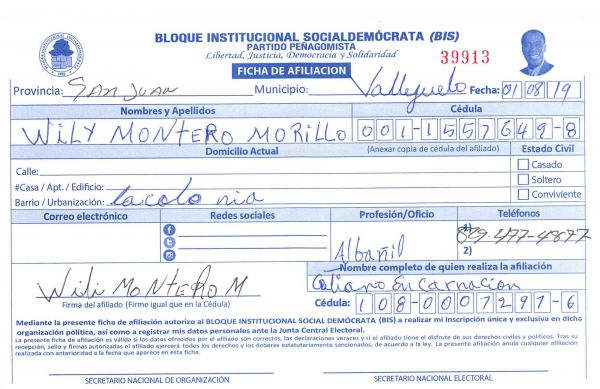 BLOQUE INSTITUCIONAL SOCIALDEMÓCRATA (BIS)
PARTIDO PEÑAGOMISTA
Libertad, Justicia, Democracia y Solidaridad
39913
FICHA DE AFILIACION
Provincia: SAN JUAN Municipio: Vallejuelo Fecha: 01/08/19
Nombres y Apellidos Cédula
WILY MONTERO MORILLO 001-1557649-8
Domicilio Actual (Anexar copia de cédula del afiliado) Estado Civil
Calle: Casado
#Casa / Apt. / Edificio: Soltero
Barrio / Urbanización: La colonia Conviviente
Correo electrónico Redes sociales Profesión/Oficio Teléfonos
Albañil 1) 809-477-4877
2)
Nombre completo de quien realiza la afiliación
Wili MONTERO M Encarnacion
Firma del afiliado (Firme igual que en la Cédula) Cédula: 108-0007297-6
Mediante la presente ficha de afiliación autorizo al BLOQUE INSTITUCIONAL SOCIAL DEMÓCRATA (BIS) a realizar mi inscripción única y exclusiva en dicha
organización política, así como a registrar mis datos personales ante la Junta Central Electoral.
La presente ficha de afiliación es válida si los datos ofrecidos por el afiliado son correctos, las declaraciones veraces y si el afiliado tiene el disfrute de sus derechos civiles y políticos. Tras su
recepción, sello y firmas autorizadas el afiliado ejercerá todos los derechos y los deberes estatutariamente sancionados, de acuerdo a la ley. La presente afiliación anula cualquier afiliación
realizada con anterioridad a la fecha que aparece en esta ficha.
SECRETARIO NACIONAL DE ORGANIZACIÓN SECRETARIO NACIONAL ELECTORAL